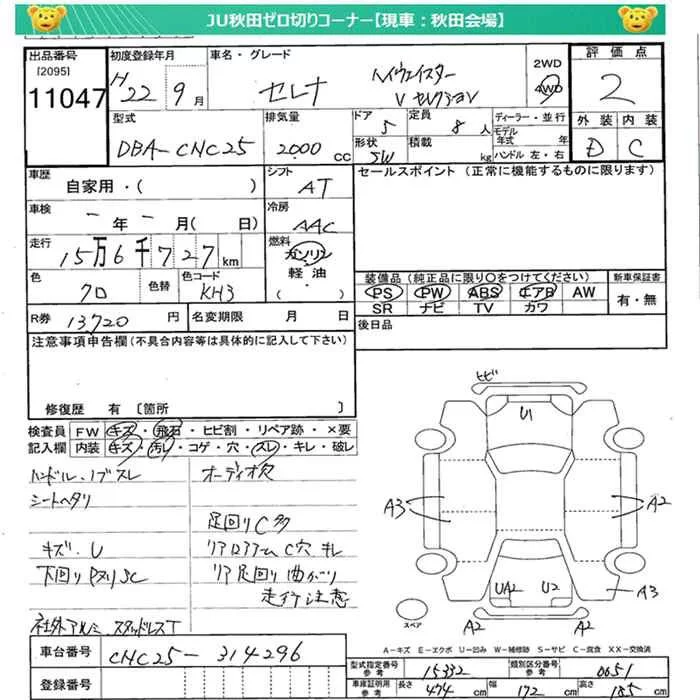 JU秋田ゼロ切りコーナー【現車：秋田会場】
出品番号 [2095] 11047
初度登録年月 H22年9月
車名・グレード セレナ ハイウェイスター Vセレクション
2WD 4WD
評価点 2
型式 DBA-CNC25
排気量 2000 cc
ドア 5
形状 SW
定員 8 人
積載 kg
ディーラー・並行
モデル年式 年
ハンドル 左・右
外装 D
内装 C
車歴 自家用・( )
シフト AT
セールスポイント (正常に機能するものに限ります)
車検 ー年ー月( 日)
冷房 AAC
走行 15万6千727km
燃料 ガソリン 軽油・( )
色 クロ
色替
色コード KH3
装備品 (純正品に限り〇をつけてください)
PS PW ABS エアB AW
SR ナビ TV カワ
新車保証書 有・無
R券 13720 円
名変期限 月 日
後日品
注意事項申告欄 (不具合内容等は具体的に記入して下さい)
修復歴 有 〔箇所 〕
検査員記入欄
FW キズ・飛石・ヒビ割・リペア跡・×要
内装 キズ・汚レ・コゲ・穴・スレ・キレ・破レ
ハンドル・ノブスレ オーディオ欠
シートヘタリ
足回りC多
キズ・U リアロアアームC穴キレ
下回りPヌリSC リア足回り曲がり
走行注意
社外アルミ、スタッドレスT
ヒビ
U1
A3
A2
UA2 U2
A3
A2 A2
スペア
A-キズ E-エクボ U-凹み W-補修跡 S-サビ C-腐食 XX-交換済
車台番号 CNC25-314296
登録番号
型式指定番号 参考 15332
類別区分番号 参考 0651
車庫証明用 参考 長さ 474 cm 幅 172 cm 高さ 185 cm